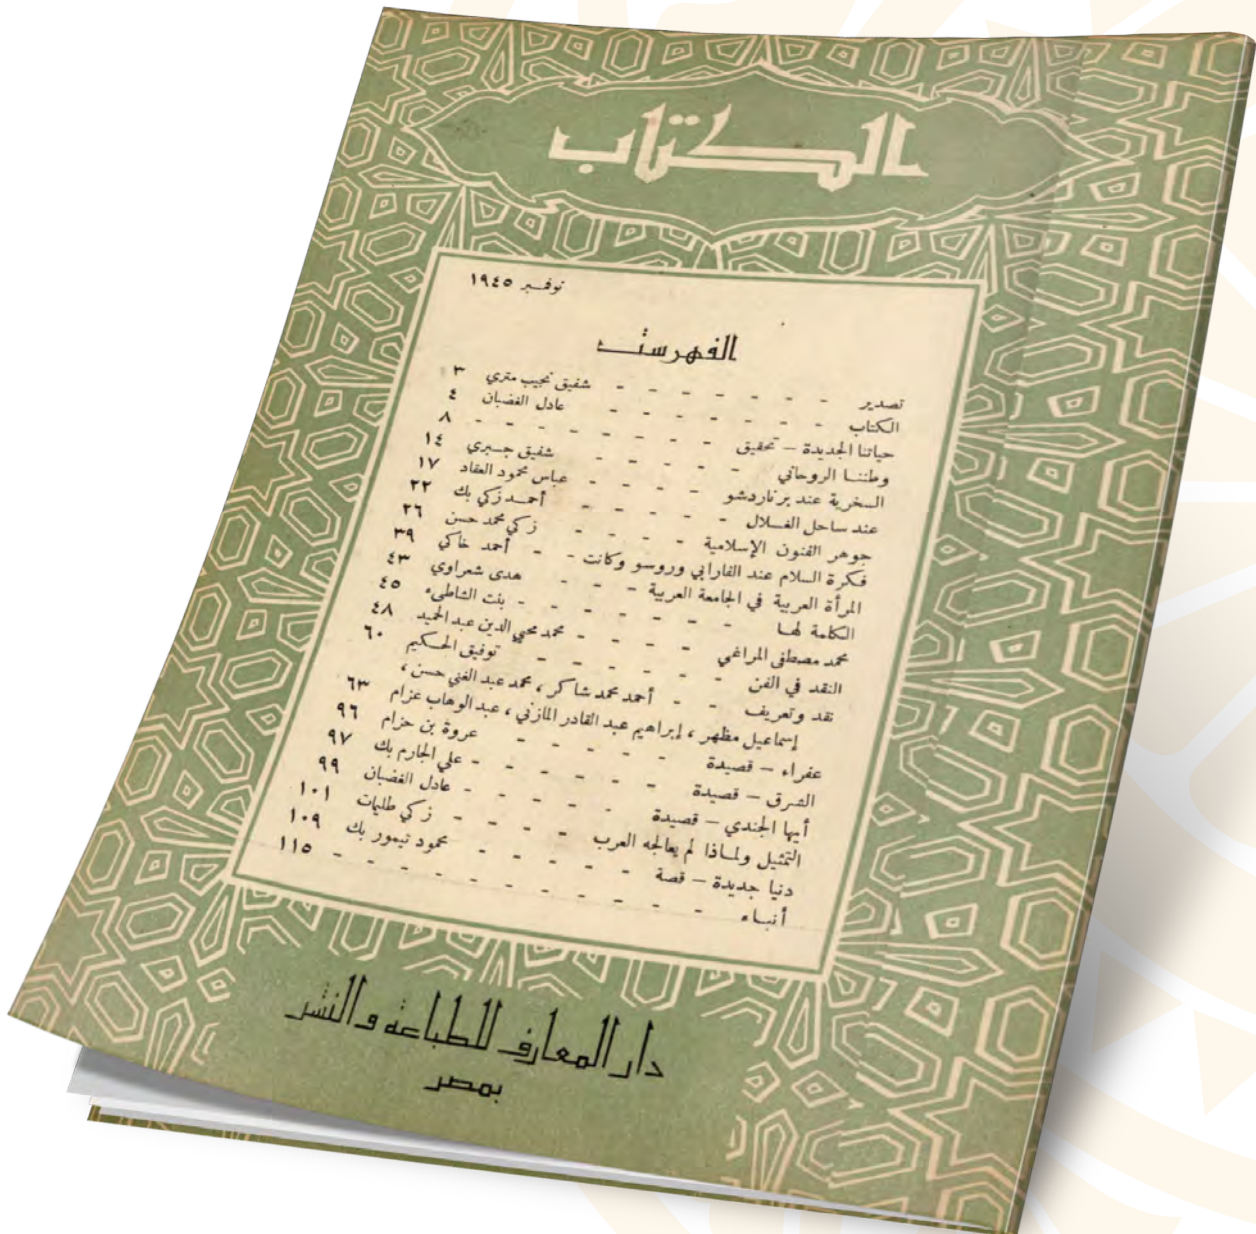 الكتاب
نوفمبر ١٩٤٥
الفهرست
تصدير - - - - - - - شفيق نجيب متري ٣
الكتاب - - - - - - - عادل الغضبان ٤
حياتنا الجديدة – تحقيق - - - - - - - - ٨
وطننا الروحاني - - - - - شفيق جبري ١٤
السخرية عند برناردشو - - - - عباس محمود العقاد ١٧
عند ساحل الغلال - - - - - أحمد زكي بك ٢٢
جوهر الفنون الإسلامية - - - - زكي محمد حسن ٢٦
فكرة السلام عند الفارابي وروسو وكانت - - أحمد خاكي ٣٩
المرأة العربية في الجامعة العربية - - - هدى شعراوي ٤٣
الكلمة لها - - - - - - بنت الشاطىء ٤٥
محمد مصطفى المراغي - - - - محمد محيي الدين عبد الحميد ٤٨
النقد في الفن - - - - - - توفيق الحكيم ٦٠
نقد وتعريف - - أحمد محمد شاكر ، محمد عبد الغني حسن ،
إسماعيل مظهر ، إبراهيم عبد القادر المازني ، عبد الوهاب عزام ٦٣
عفراء – قصيدة - - - - - عروة بن حزام ٩٦
الشرق – قصيدة - - - - - - علي الجارم بك ٩٧
أيها الجندي – قصيدة - - - - - عادل الغضبان ٩٩
التمثيل ولماذا لم يعالجه العرب - - - - زكي طليمات ١٠١
دنيا جديدة – قصة - - - - - محمود تيمور بك ١٠٩
أنباء - - - - - - - - - - ١١٥
دار المعارف للطباعة والنشر
بمصر